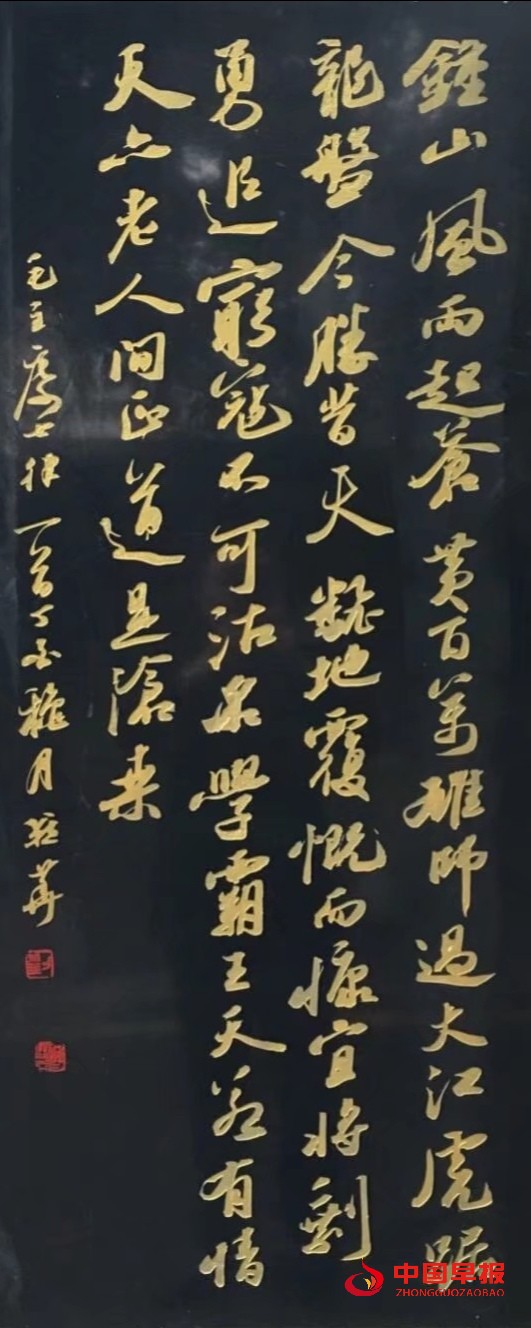 鍾山風雨起蒼黄百萬雄師過大江虎踞
龍盤今勝昔天翻地覆慨而慷宜將剩
勇追窮寇不可沽名學霸王天若有情
天亦老人間正道是滄桒
毛主席七律一首丁月華
中国早报
ZHONGGUOZAOBAO